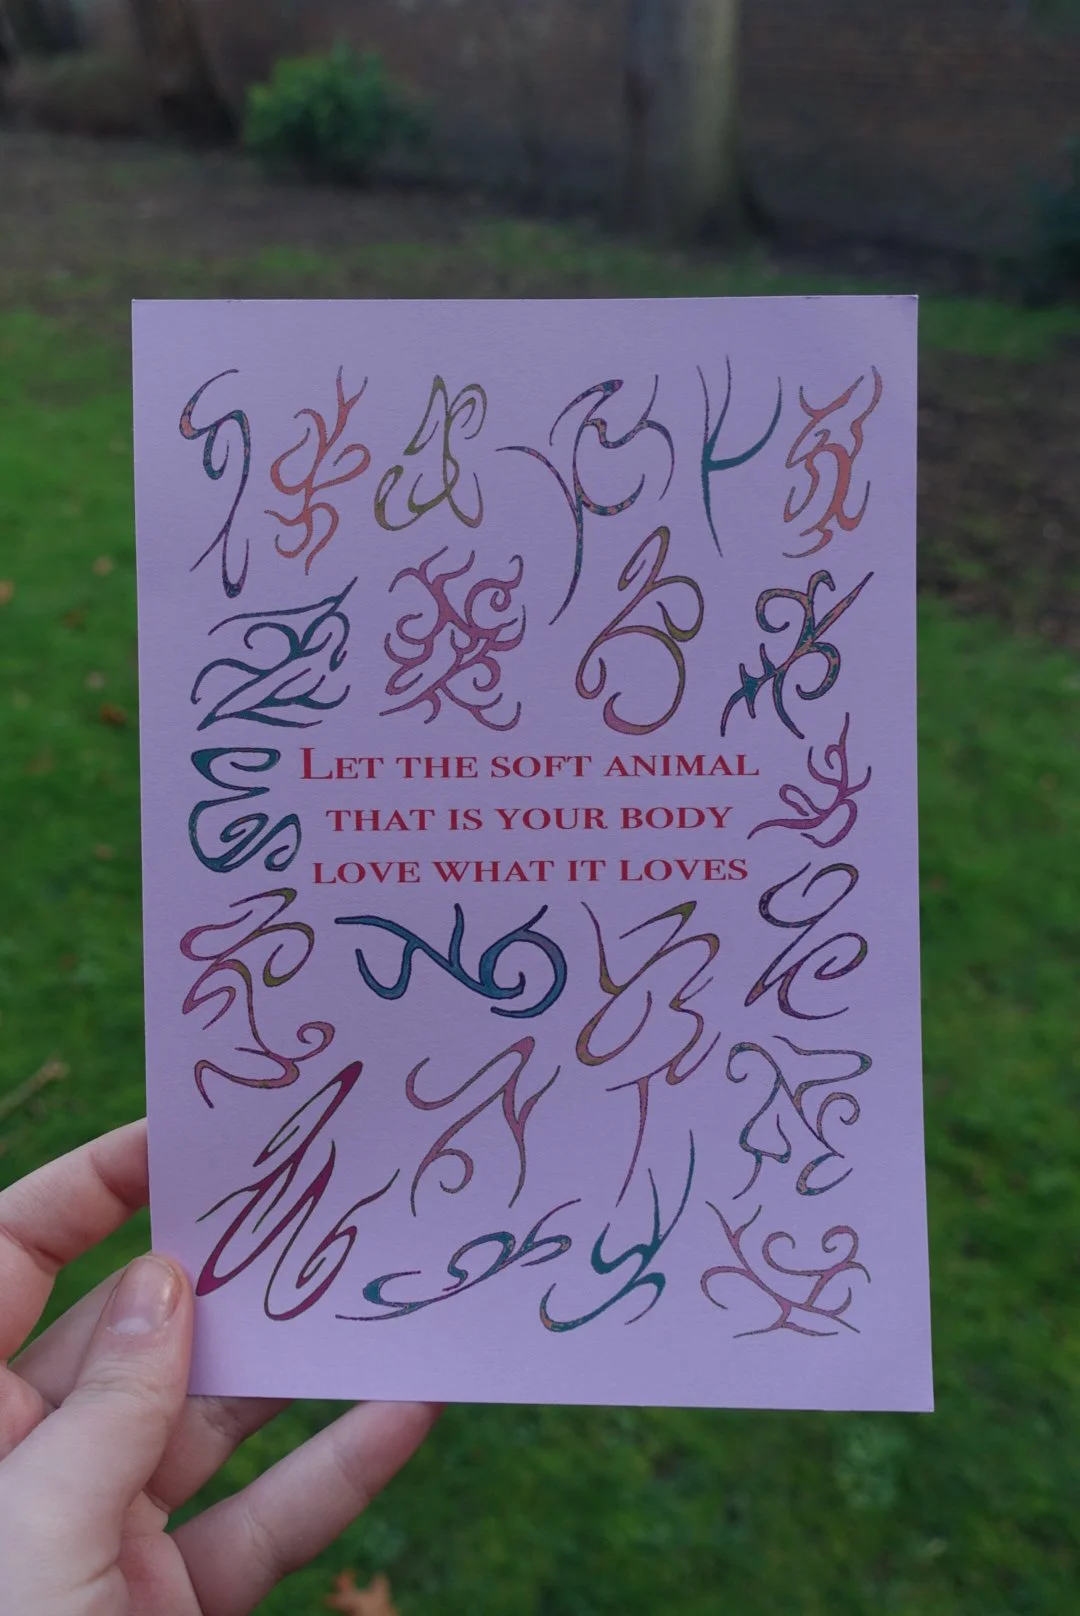 LET THE SOFT ANIMAL
THAT IS YOUR BODY
LOVE WHAT IT LOVES